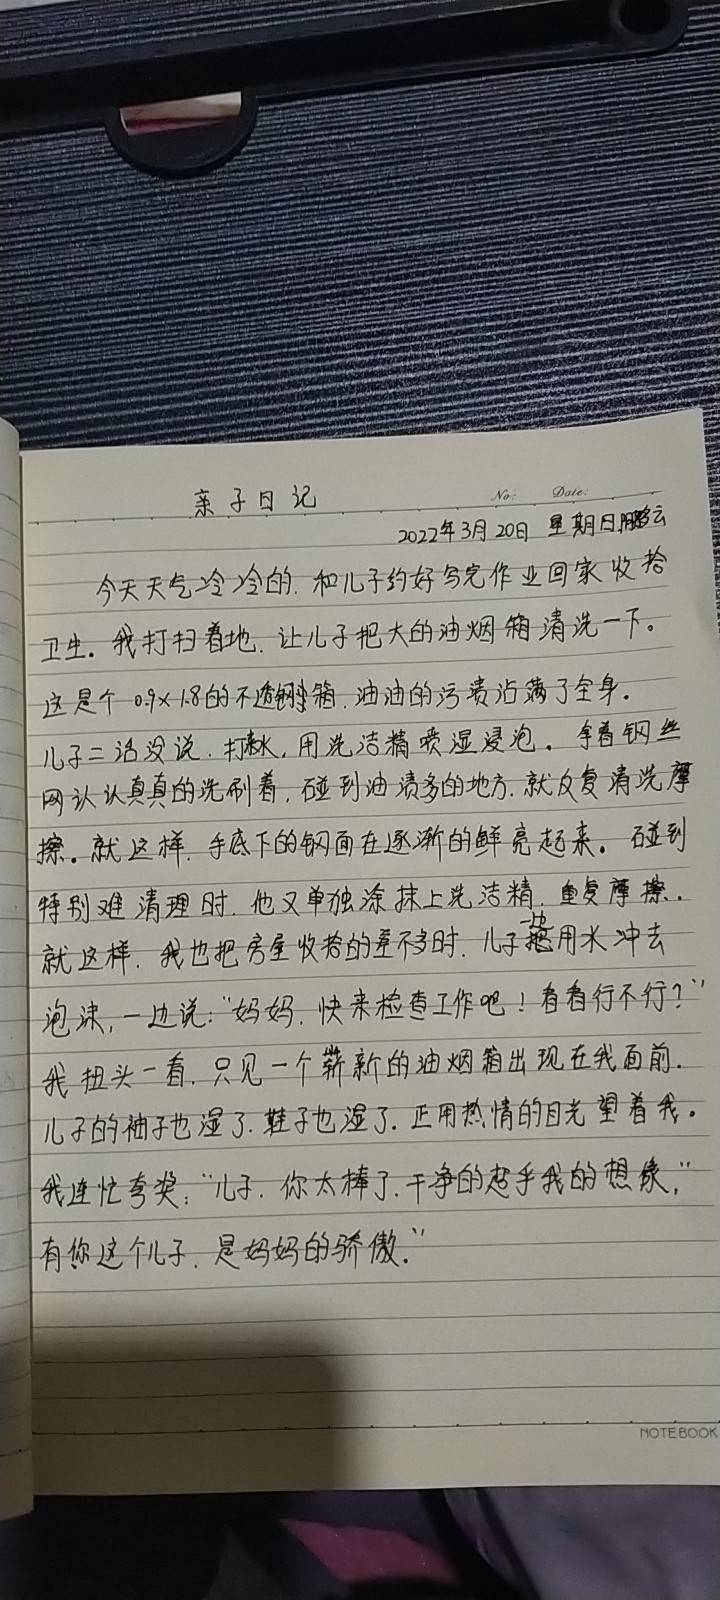 亲子日记
No: Date:
2022年3月20日 星期日 云
今天天气冷冷的.和儿子约好写完作业回家收拾
卫生。我打扫着地.让儿子把大的油烟箱清洗一下。
这是个 0.9×1.8的不透钢箱.油油的污渍沾满了全身.
儿子二话没说.打来水,用洗洁精喷湿浸泡。拿着钢丝
网认认真真的洗刷着,碰到油渍多的地方.就反复清洗摩
擦。就这样.手底下的钢面在逐渐的鲜亮起来。碰到
特别难清理时.他又单独涂抹上洗洁精.重复摩擦.
就这样.我也把房屋收拾的差不多时.儿子一边用水冲去
泡沫,一边说:"妈妈.快来检查工作吧!看看行不行?"
我扭头一看.只见一个崭新的油烟箱出现在我面前.
儿子的袖子也湿了.鞋子也湿了.正用热情的目光望着我。
我连忙夸奖:"儿子.你太棒了.干净的超乎我的想象,"
有你这个儿子.是妈妈的骄傲."
NOTEBOOK